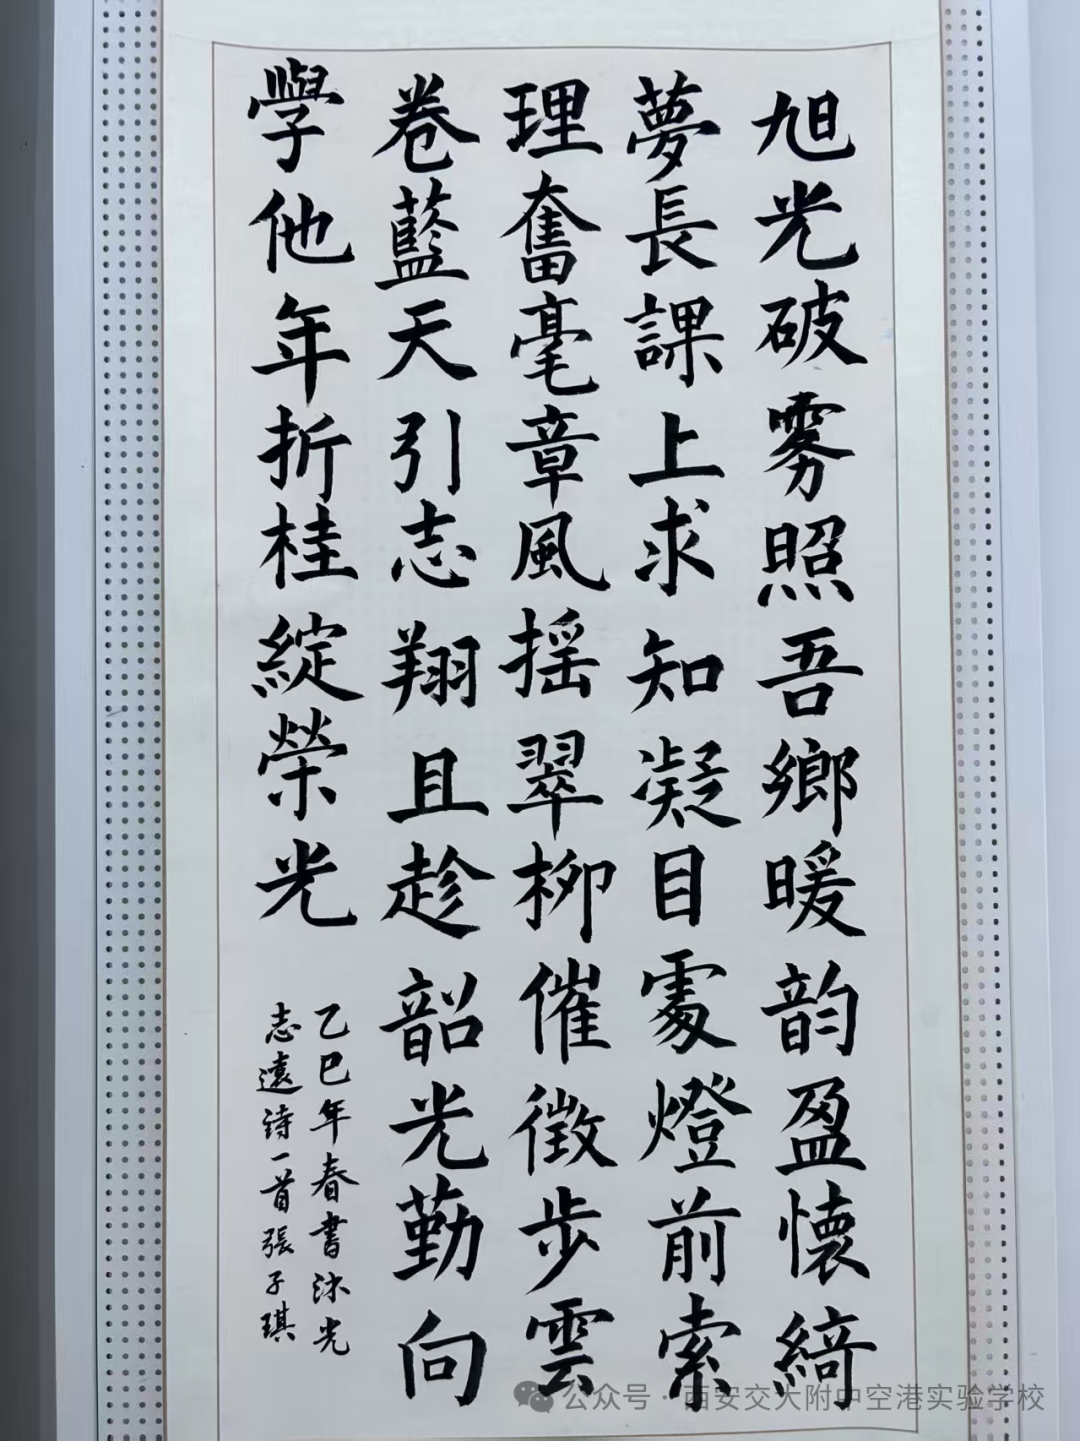 旭光破雾照吾鄉暖韵盈懷綺
夢長課上求知凝目處燈前索
理奮毫章風摇翠柳催徵步雲
卷藍天引志翔且趁韶光勤向
學他年折桂綻榮光
乙巳年春書沐光
志遠詩一首張子琪
公众号·西安交大附中空港实验学校